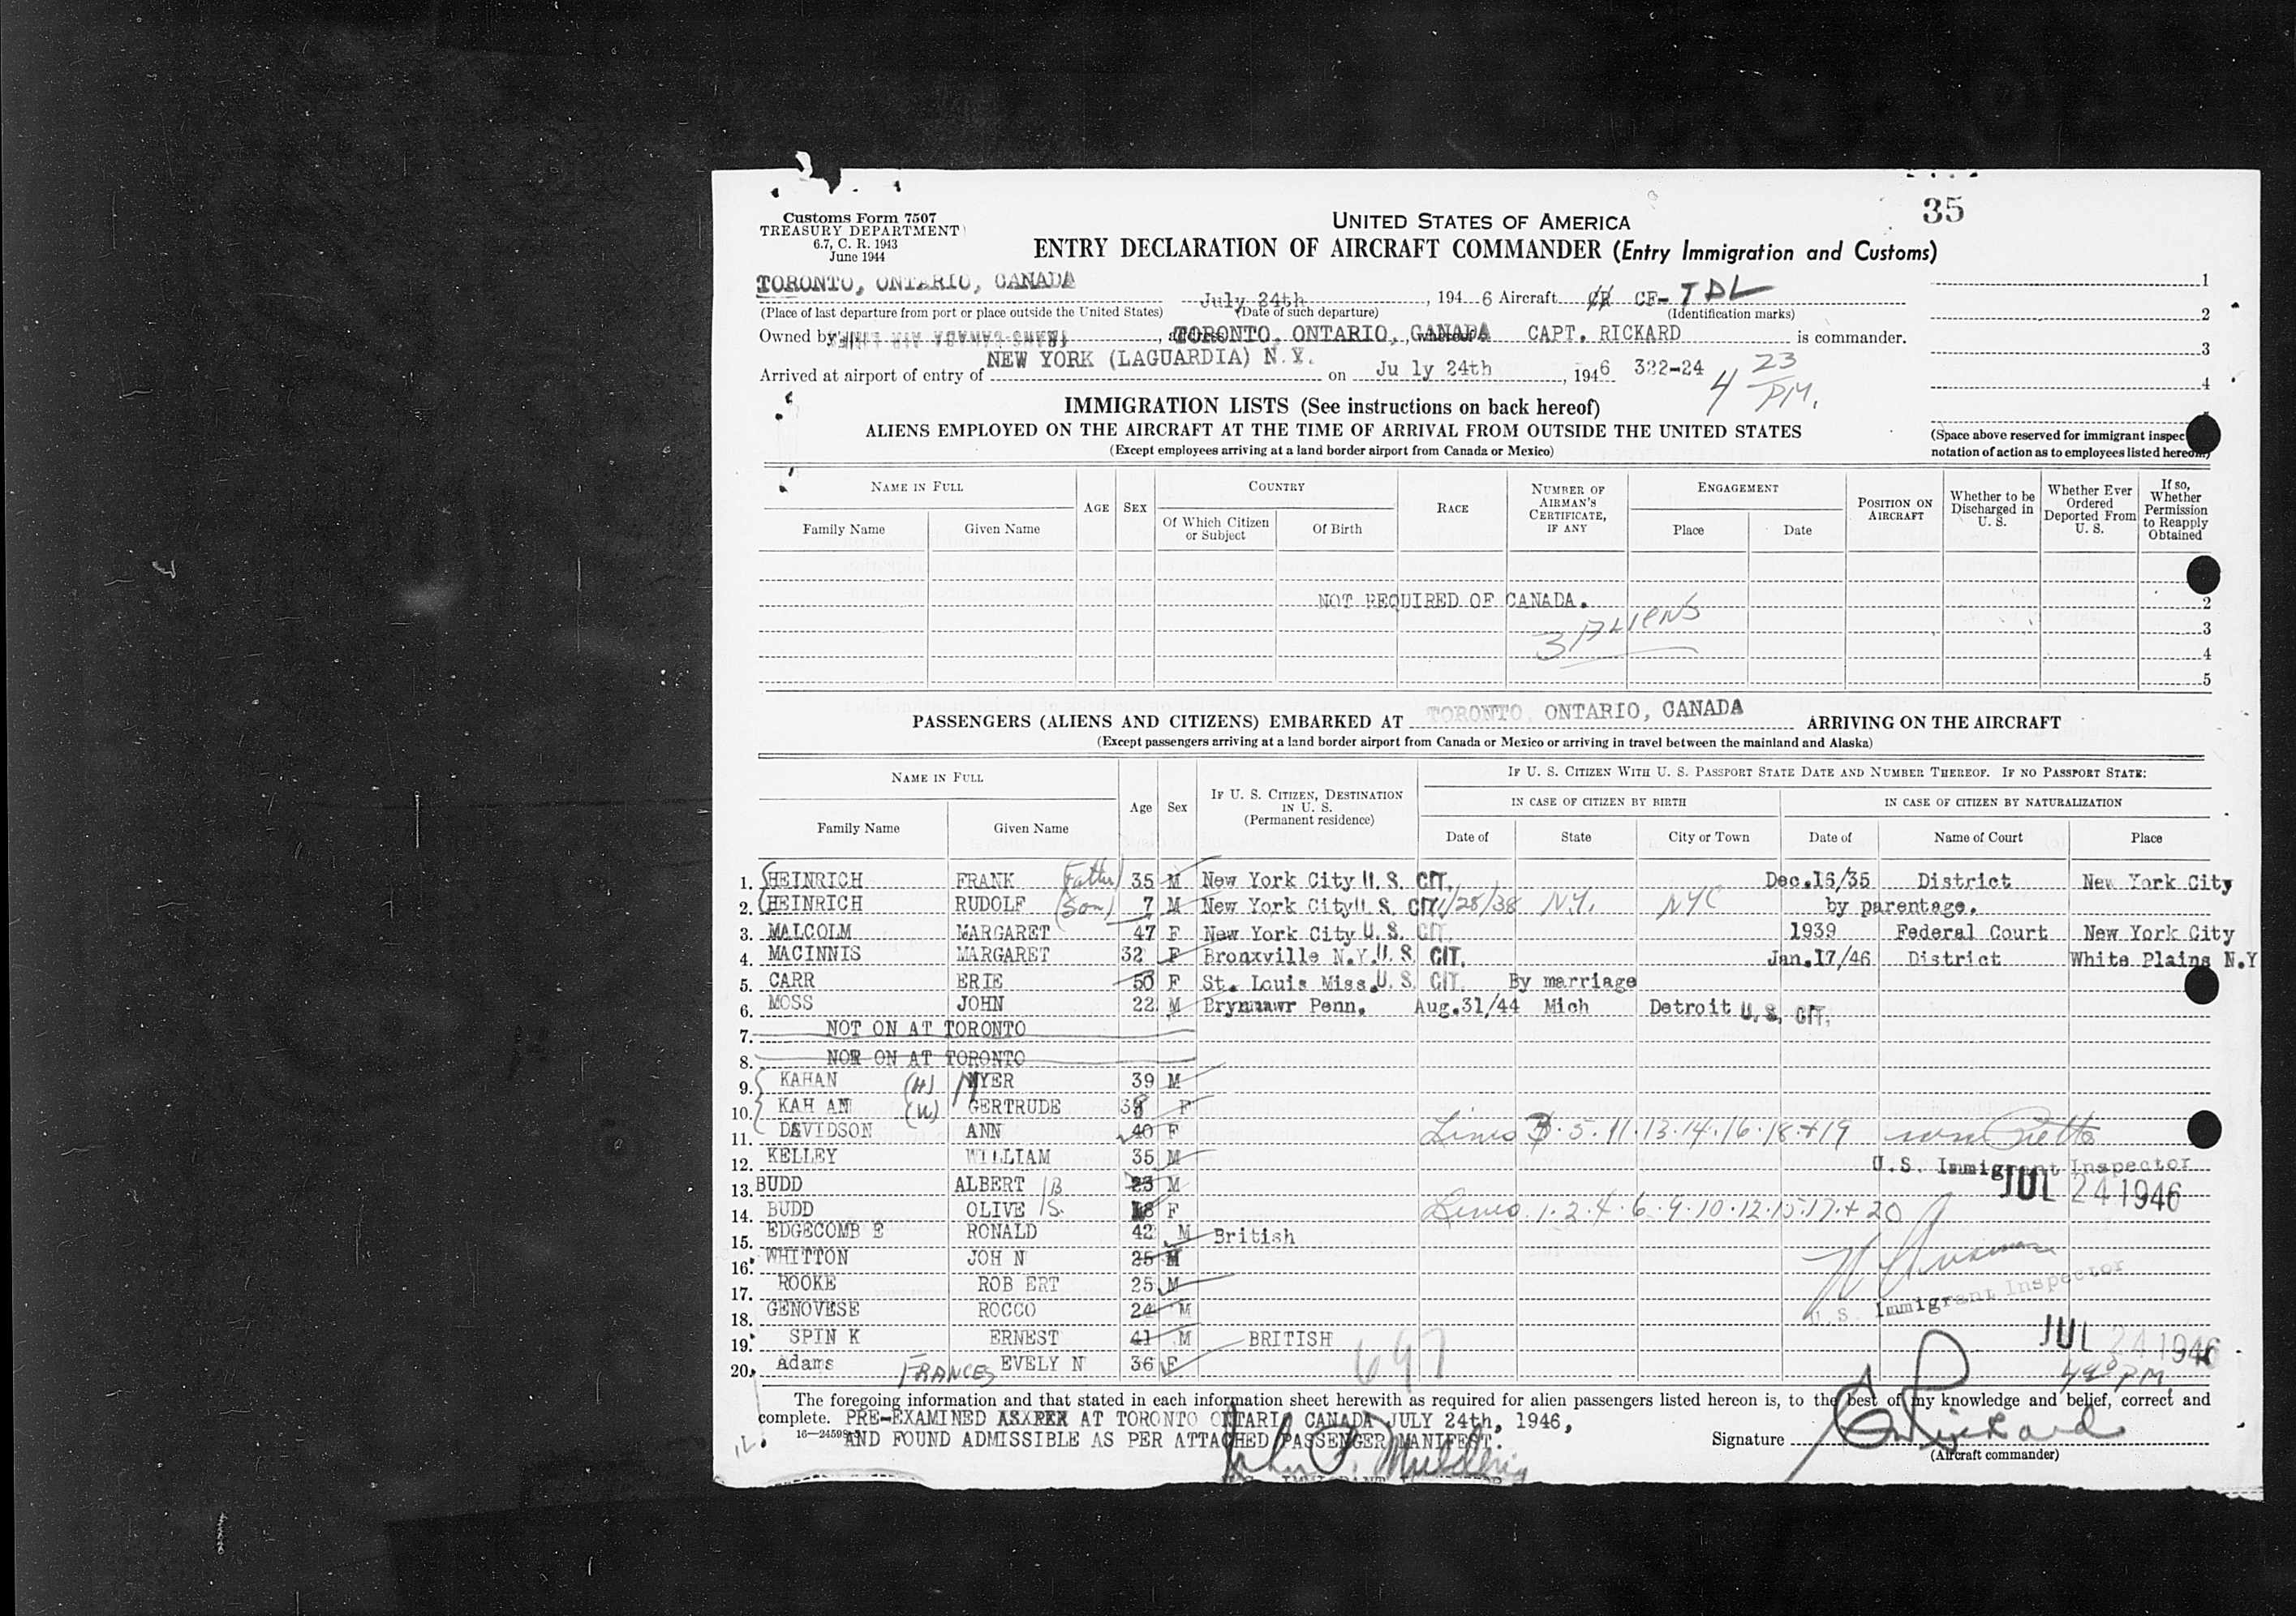 35
Customs Form 7507
TREASURY DEPARTMENT
6.7, C. R. 1943
June 1944
UNITED STATES OF AMERICA
ENTRY DECLARATION OF AIRCRAFT COMMANDER (Entry Immigration and Customs)
TORONTO, ONTARIO, CANADA July 24th, 194 6 Aircraft CF- TDL
(Place of last departure from port or place outside the United States) (Date of such departure) (Identification marks)
Owned by TRANS-CANADA AIR LINES, TORONTO, ONTARIO, CANADA whereof CAPT. RICKARD is commander.
Arrived at airport of entry of NEW YORK (LAGUARDIA) N.Y. on Ju ly 24th, 1946 322-24 4 23 PM.
1
2
3
4
(Space above reserved for immigrant inspec
notation of action as to employees listed hereon.)
IMMIGRATION LISTS (See instructions on back hereof)
ALIENS EMPLOYED ON THE AIRCRAFT AT THE TIME OF ARRIVAL FROM OUTSIDE THE UNITED STATES
(Except employees arriving at a land border airport from Canada or Mexico)
NAME IN FULL
Family Name Given Name
AGE SEX
COUNTRY
Of Which Citizen or Subject Of Birth
RACE
NUMBER OF AIRMAN'S CERTIFICATE, IF ANY
ENGAGEMENT
Place Date
POSITION ON AIRCRAFT
Whether to be Discharged in U. S.
Whether Ever Ordered Deported From U. S.
If so, Whether Permission to Reapply Obtained
NOT REQUIRED OF CANADA. 2
3 ALIENS 3
4
5
PASSENGERS (ALIENS AND CITIZENS) EMBARKED AT TORONTO, ONTARIO, CANADA ARRIVING ON THE AIRCRAFT
(Except passengers arriving at a land border airport from Canada or Mexico or arriving in travel between the mainland and Alaska)
NAME IN FULL
Family Name Given Name
Age Sex
IF U. S. CITIZEN, DESTINATION IN U. S. (Permanent residence)
IF U. S. CITIZEN WITH U. S. PASSPORT STATE DATE AND NUMBER THEREOF. IF NO PASSPORT STATE:
IN CASE OF CITIZEN BY BIRTH IN CASE OF CITIZEN BY NATURALIZATION
Date of State City or Town Date of Name of Court Place
1. HEINRICH FRANK (Father) 35 M New York City U. S. CIT. Dec.16/35 District New York City
2. HEINRICH RUDOLF (Son) 7 M New York City U. S. CIT. 1/28/38 N.Y. NYC by parentage.
3. MALCOLM MARGARET 47 F New York City U. S. CIT. 1939 Federal Court New York City
4. MACINNIS MARGARET 32 F Bronxville N.Y. U. S. CIT. Jan.17/46 District White Plains N.Y
5. CARR ERIE 50 F St. Louis Miss. U. S. CIT. By marriage
6. MOSS JOHN 22 M Brynmawr Penn. Aug.31/44 Mich Detroit U. S. CIT.
7. NOT ON AT TORONTO
8. NOR ON AT TORONTO
9. KAHAN (H) MYER 39 M
10. KAH AN (W) GERTRUDE 38 F
11. DAVIDSON ANN 40 F Lines 3. 5. 11. 13. 14. 16. 18. + 19
12. KELLEY WILLIAM 35 M U.S. Immigrant Inspector
13. BUDD ALBERT B 23 M JUL 24 1946
14. BUDD OLIVE S. 18 F Lines 1. 2. 4. 6. 9. 10. 12. 15. 17. + 20
15. EDGECOMB E RONALD 42 M British
16. WHITTON JOH N 25 M
17. ROOKE ROB ERT 25 M
18. GENOVESE ROCCO 24 M U. S. Immigrant Inspector
19. SPIN K ERNEST 41 M BRITISH JUL 24 1946
20. Adams FRANCES EVELY N 36 F 697 PM
The foregoing information and that stated in each information sheet herewith as required for alien passengers listed hereon is, to the best of my knowledge and belief, correct and
complete. PRE-EXAMINED AT TORONTO ONTARIO CANADA JULY 24th, 1946,
16—24598 AND FOUND ADMISSIBLE AS PER ATTACHED PASSENGER MANIFEST.
Signature Rickard
(Aircraft commander)